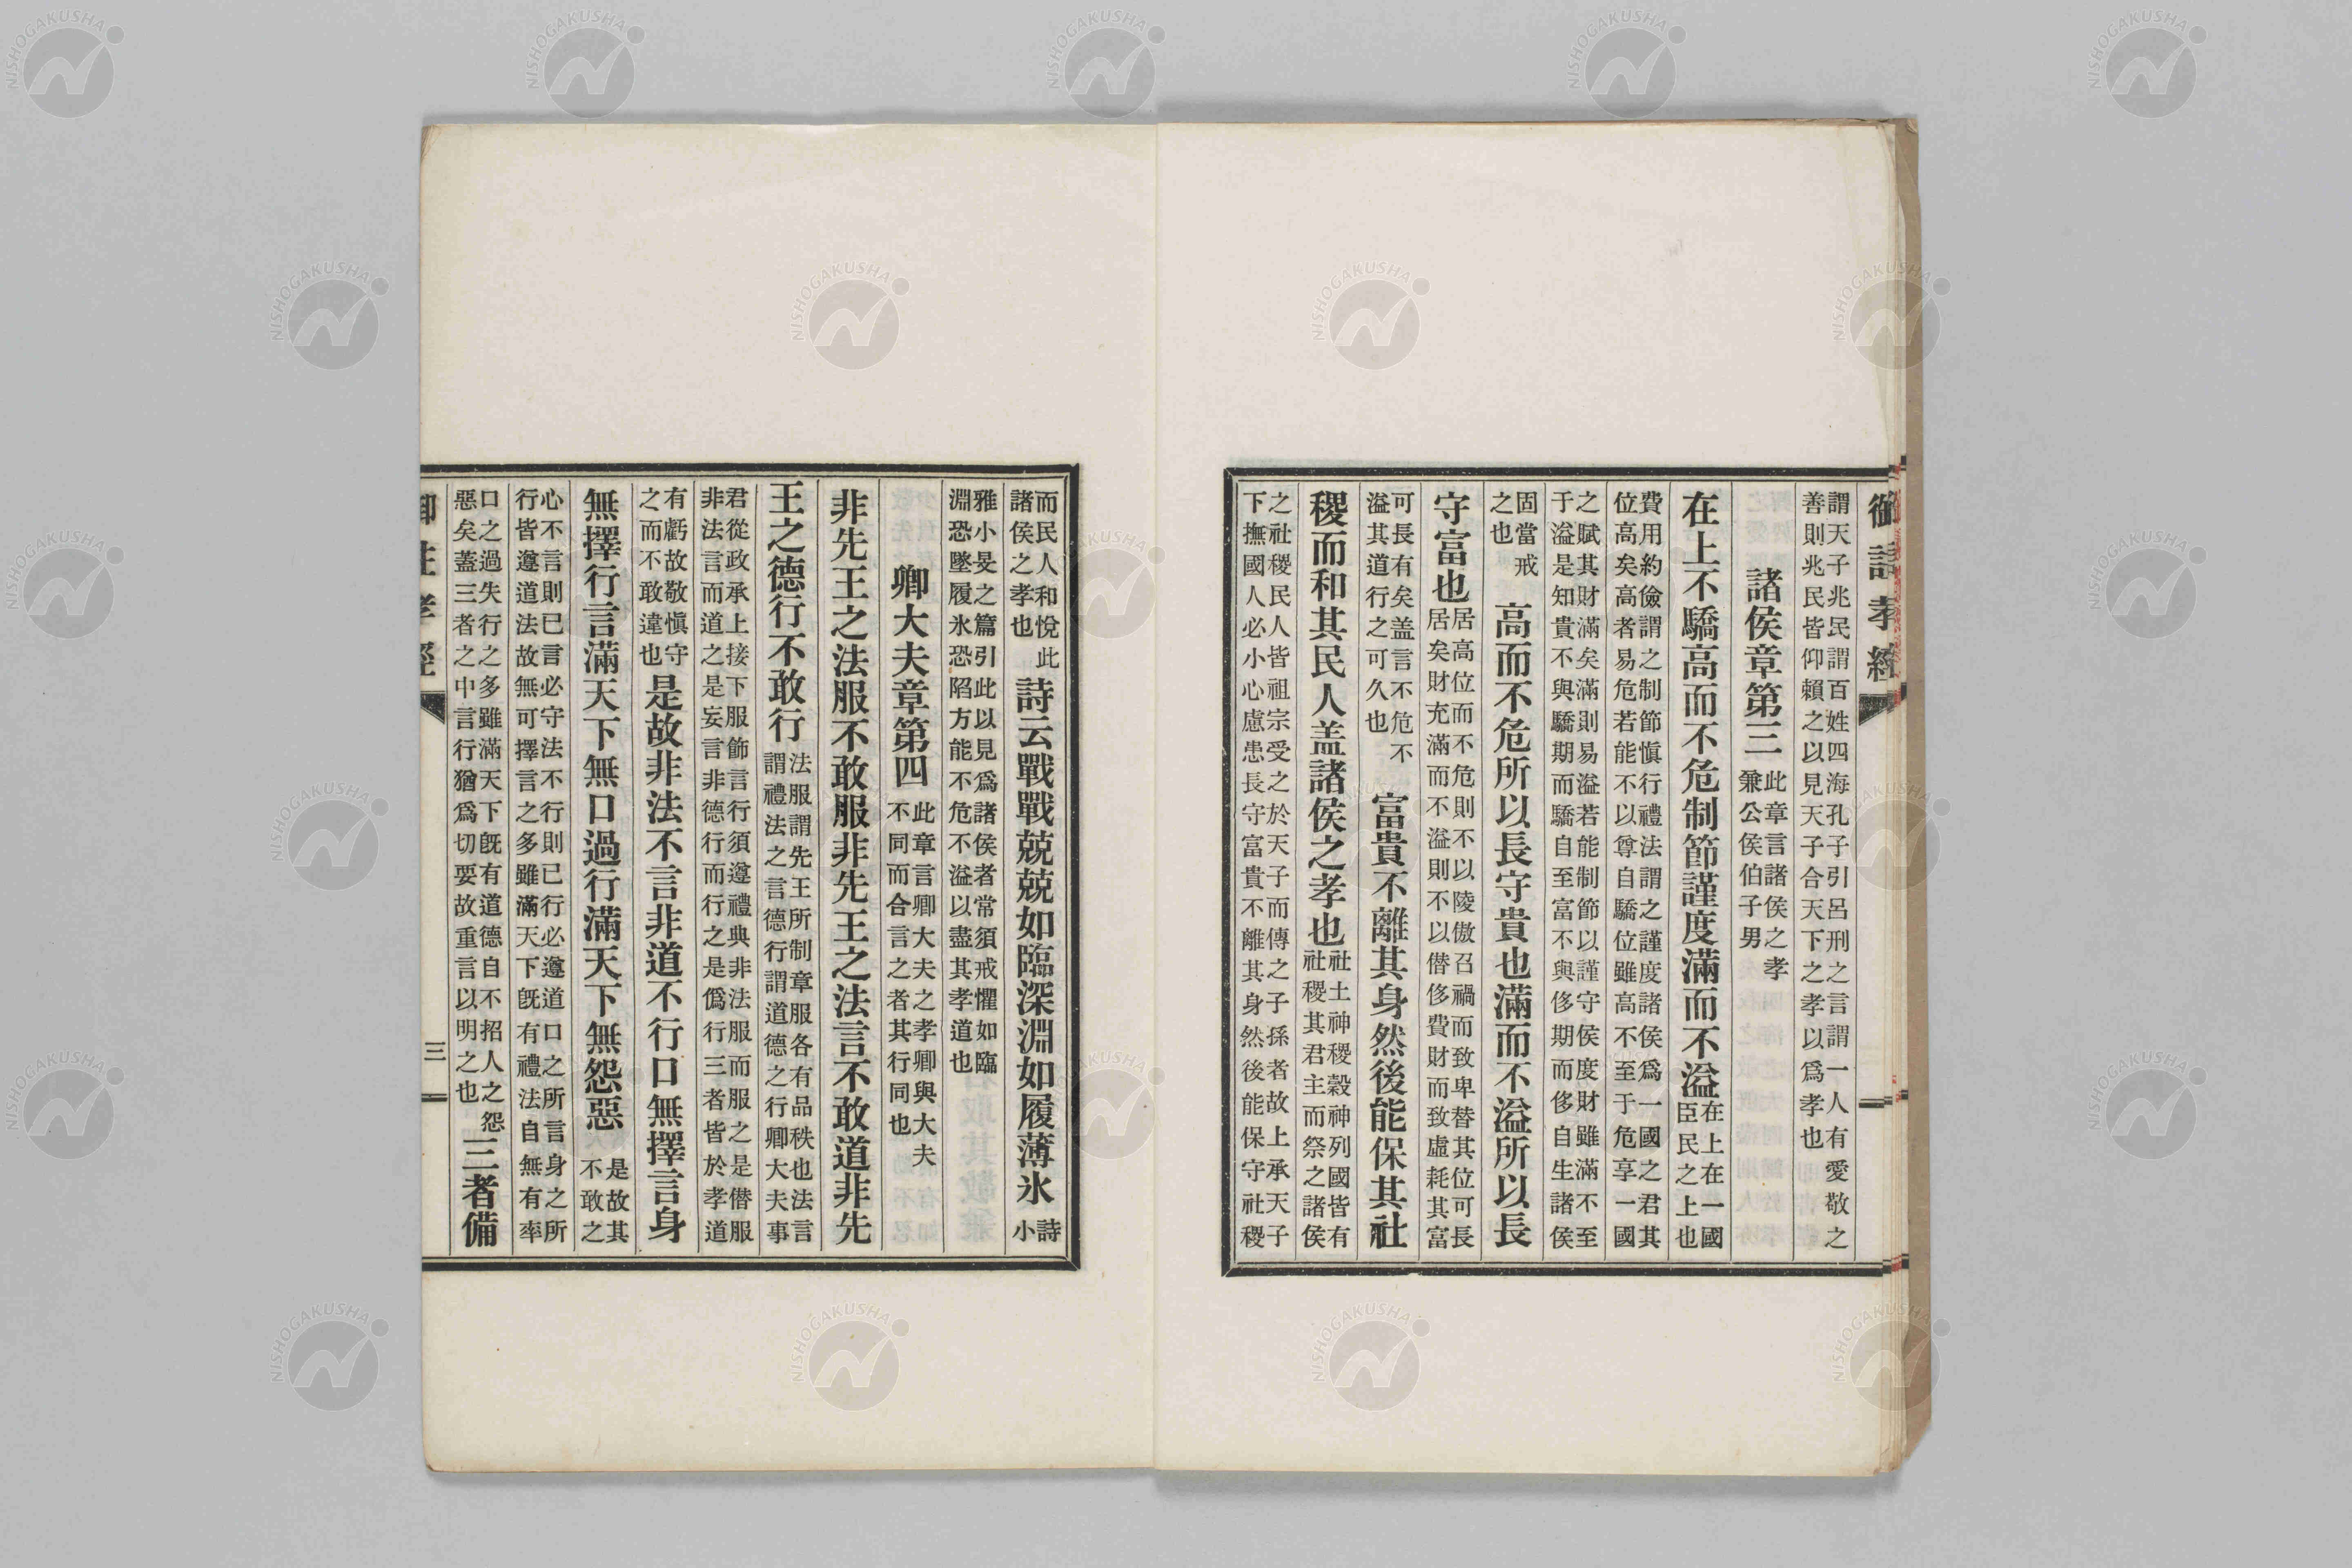 御註孝經
謂天子兆民謂百姓四海孔子引呂刑之言謂一人有愛敬之
善則兆民皆仰賴之以見天子合天下之孝以爲孝也
諸侯章第三
此章言諸侯之孝
兼公侯伯子男
在上不驕高而不危制節謹度滿而不溢
在上在一國
臣民之上也
費用約儉謂之制節愼行禮法謂之謹度諸侯爲一國之君其
位高矣高者易危若能不以尊自驕位雖高不至于危享一國
之賦其財滿矣滿則易溢若能制節以謹守侯度財雖滿不至
于溢是知貴不與驕期而驕自至富不與侈期而侈自生諸侯
固當戒
之也
高而不危所以長守貴也滿而不溢所以長
守富也
居高位而不危則不以陵傲召禍而致卑替其位可長
居矣財充滿而不溢則不以僭侈費財而致虛耗其富
可長有矣盖言不危不
溢其道行之可久也
富貴不離其身然後能保其社
稷而和其民人盖諸侯之孝也
社土神稷穀神列國皆有
社稷其君主而祭之諸侯
之社稷民人皆祖宗受之於天子而傳之子孫者故上承天子
下撫國人必小心慮患長守富貴不離其身然後能保守社稷
而民人和悅此
諸侯之孝也
詩云戰戰兢兢如臨深淵如履薄氷
詩
小
雅小旻之篇引此以見爲諸侯者常須戒懼如臨
淵恐墜履氷恐陷方能不危不溢以盡其孝道也
卿大夫章第四
此章言卿大夫之孝卿與大夫
不同而合言之者其行同也
非先王之法服不敢服非先王之法言不敢道非先
王之德行不敢行
法服謂先王所制章服各有品秩也法言
謂禮法之言德行謂道德之行卿大夫事
君從政承上接下服飾言行須遵禮典非法服而服之是僭服
非法言而道之是妄言非德行而行之是僞行三者皆於孝道
有虧故敬愼守
之而不敢違也
是故非法不言非道不行口無擇言身
無擇行言滿天下無口過行滿天下無怨惡
是故其
不敢之
心不言則已言必守法不行則已行必遵道口之所言身之所
行皆遵道法故無可擇言之多雖滿天下旣有禮法自無有率
口之過失行之多雖滿天下旣有道德自不招人之怨
惡矣蓋三者之中言行猶爲切要故重言以明之也
三者備
御註孝經
三